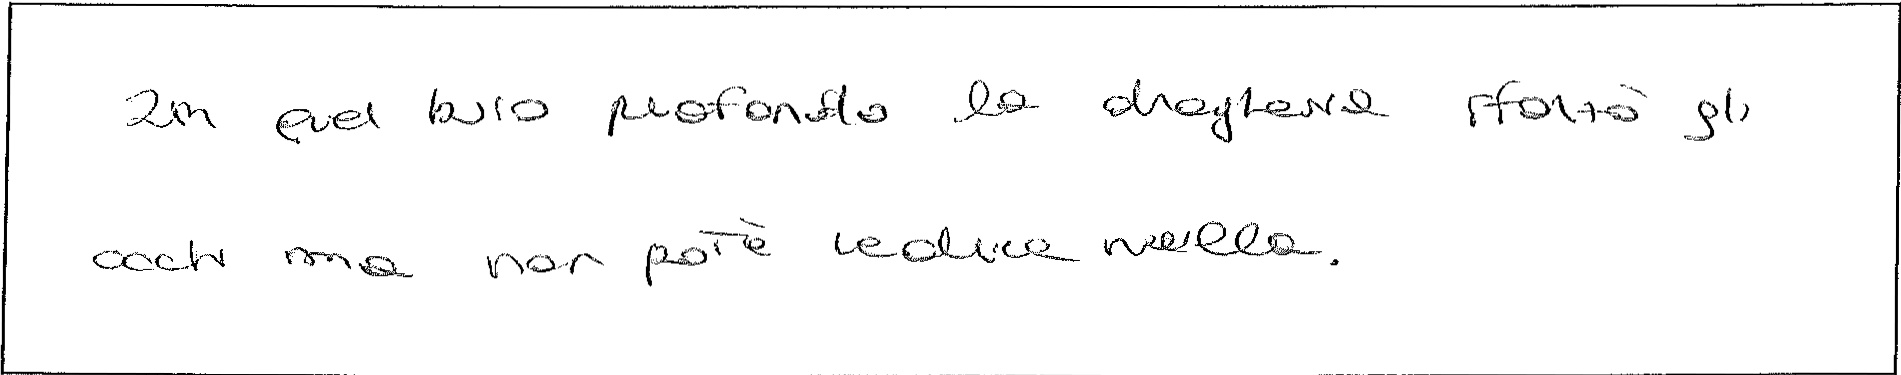 In quel buio profondo la draghessa sfoltò gli
occhi ma non potè vedere nulla.